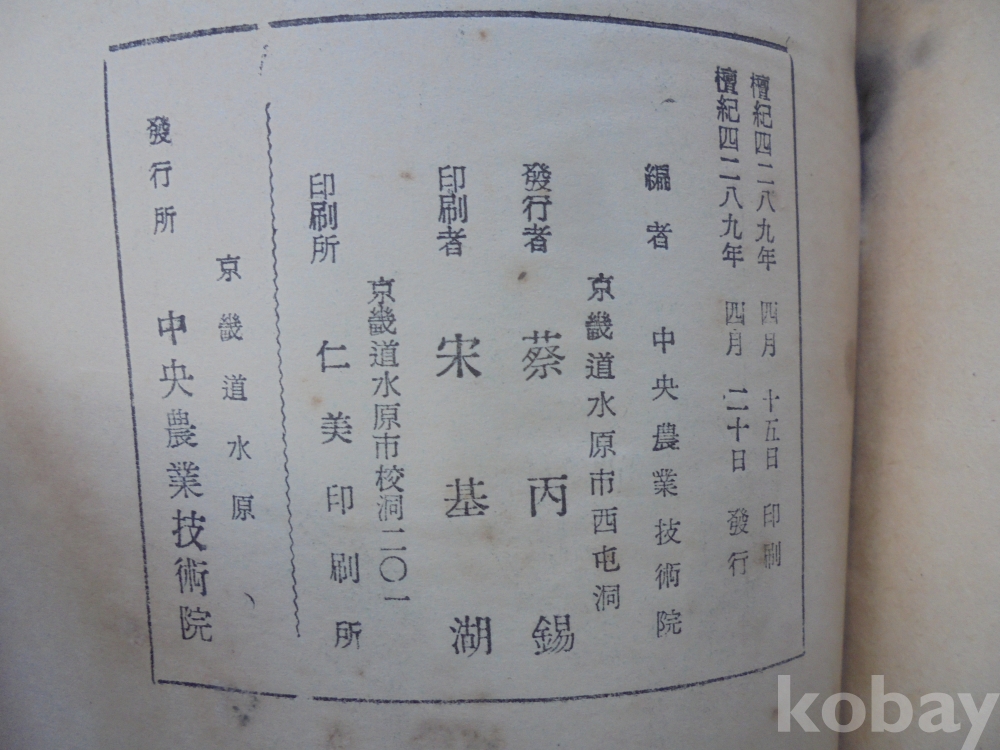 檀紀四二八九年 四月 十五日 印刷
檀紀四二八九年 四月 二十日 發行
編者 中央農業技術院
京畿道水原市西屯洞
發行者 蔡丙錫
印刷者 宋基湖
京畿道水原市校洞二〇一
印刷所 仁美印刷所
京畿道水原
發行所 中央農業技術院
kobay